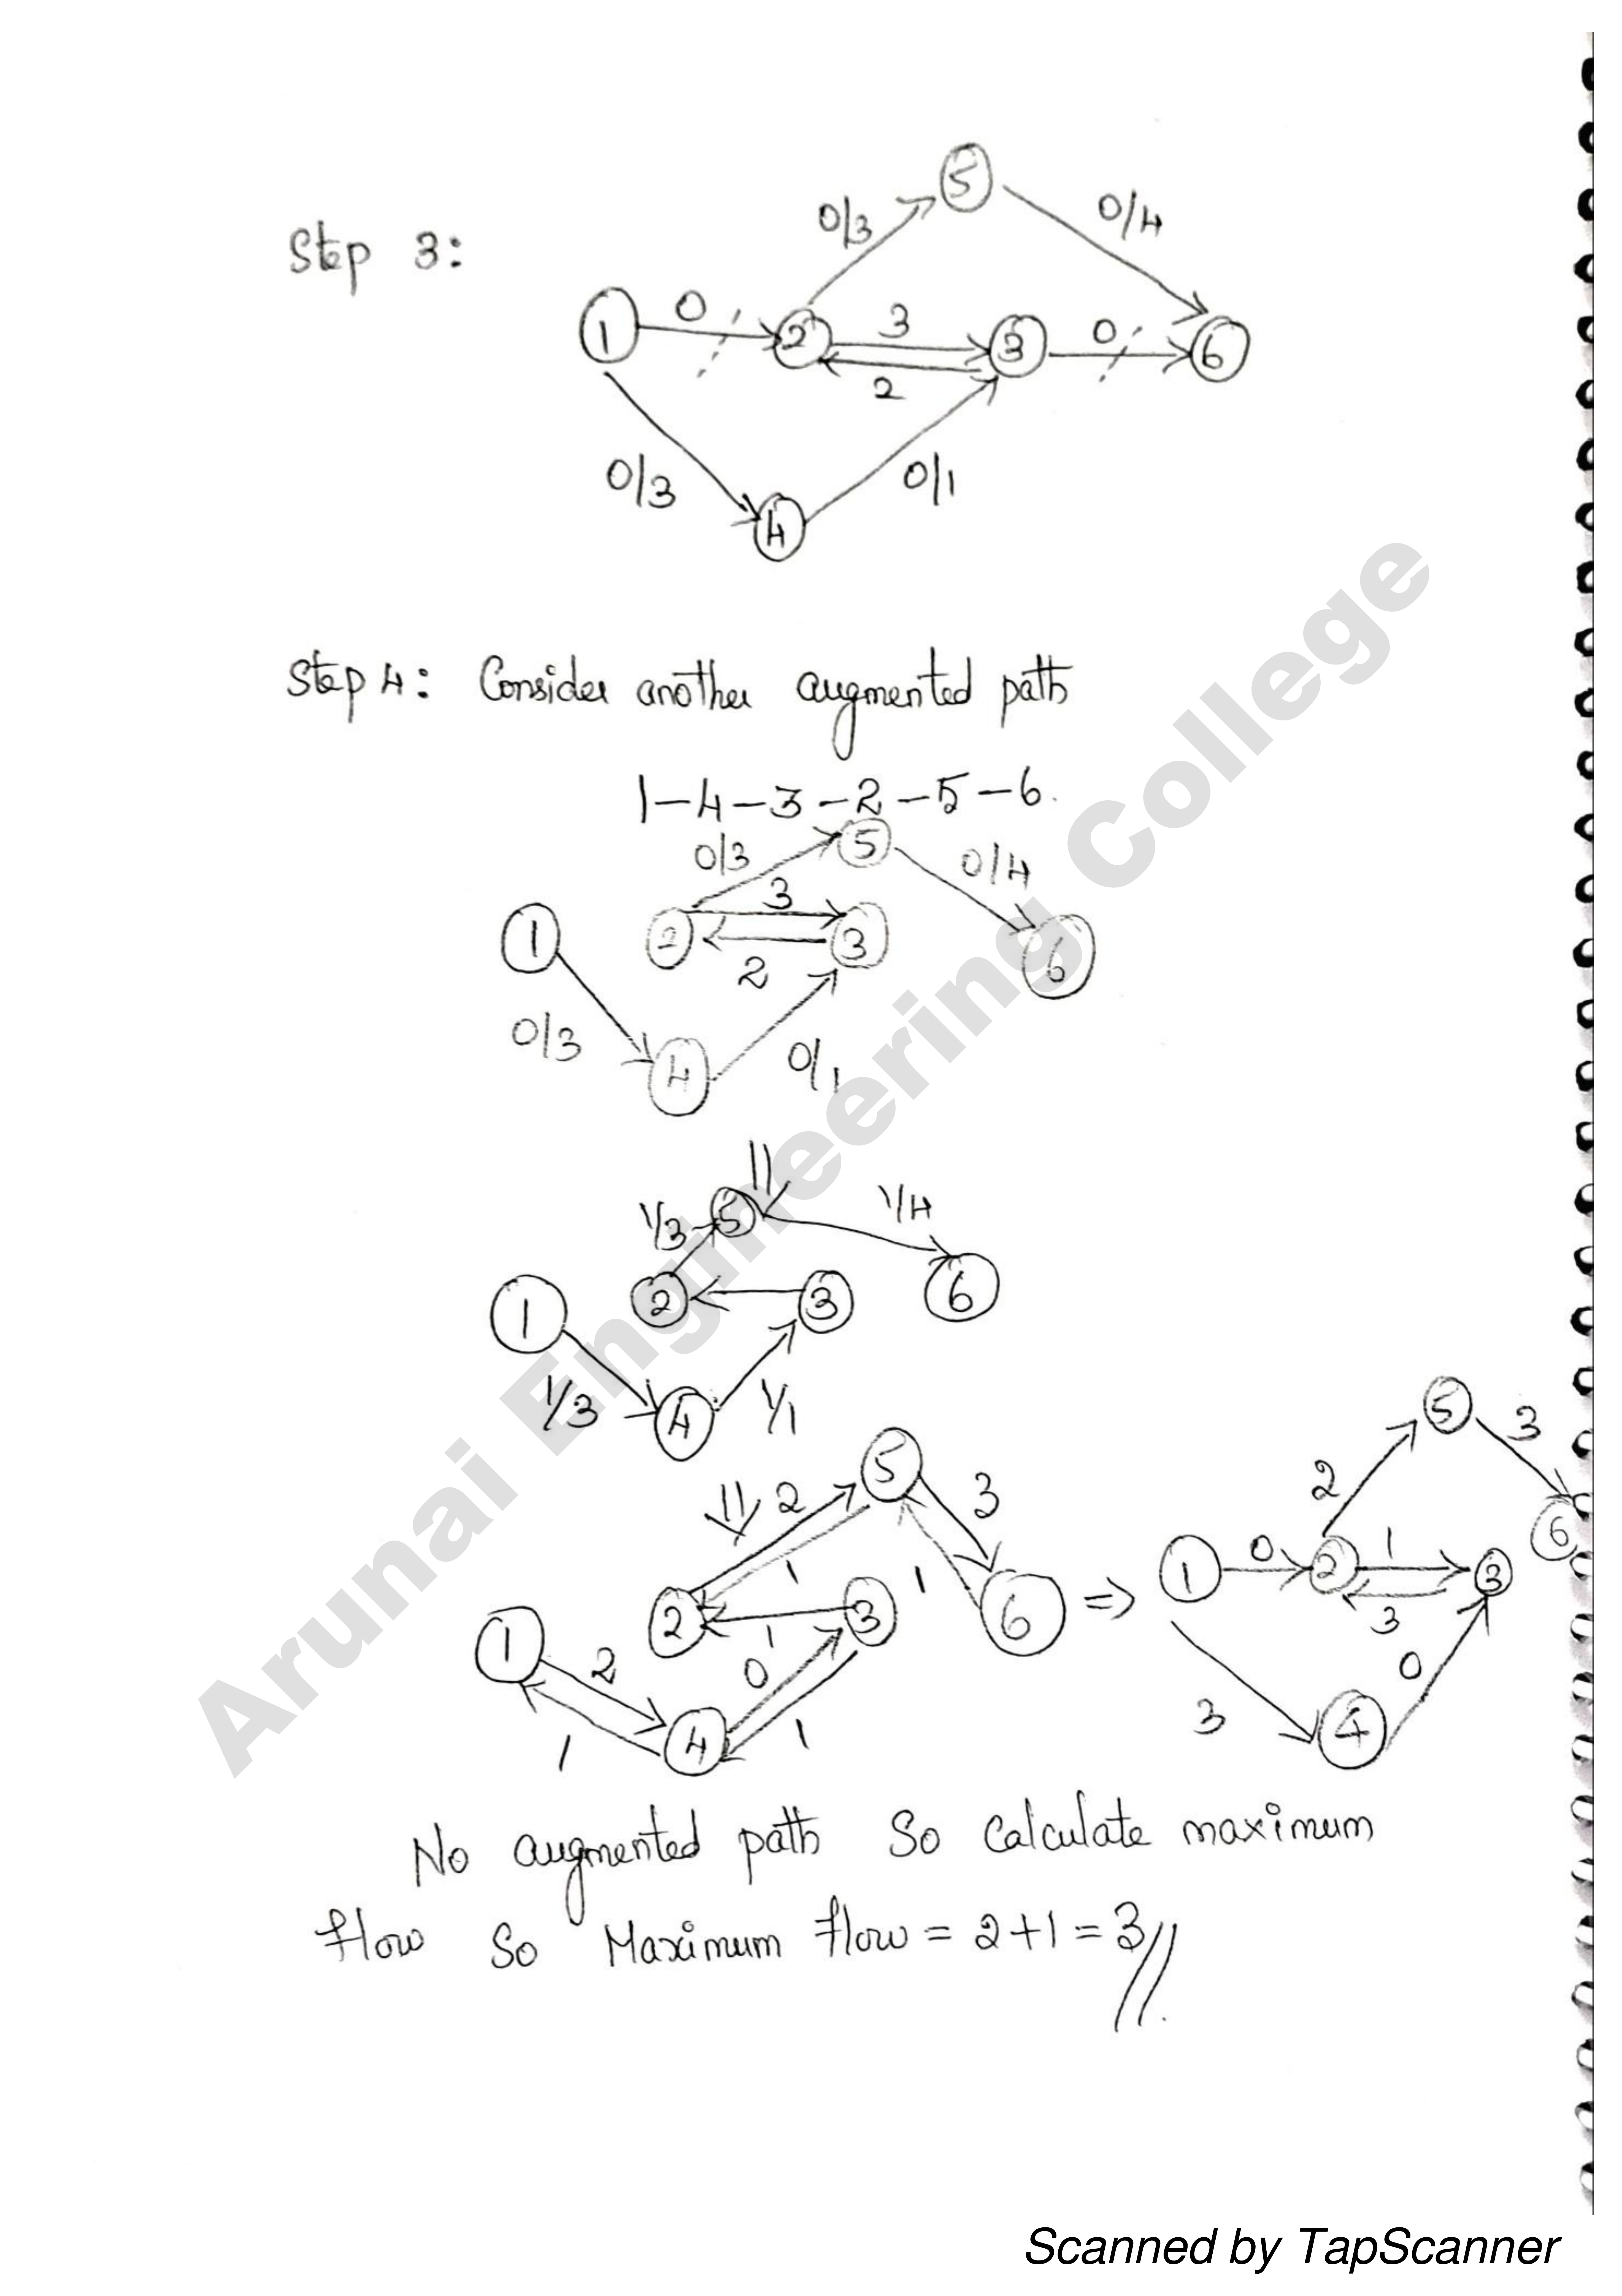 Step 3:
5
0/3
0/4
1
0
2
3
2
3
0
6
0/3
4
0/1
Step 4: Consider another augmented path
1-4-3-2-5-6.
0/3
5
0/4
1
2
3
2
3
6
0/3
4
0/1
1/3
5
1/4
1
2
3
6
1/3
4
1/1
2
5
3
1
2
3
1
1
6
1
2
0
1
4
1
=>
5
3
2
1
0
2
1
3
3
6
3
4
0
No augmented path So Calculate maximum
flow So Maximum flow = 2+1 = 3//
Arunai Engineering College
Scanned by TapScanner